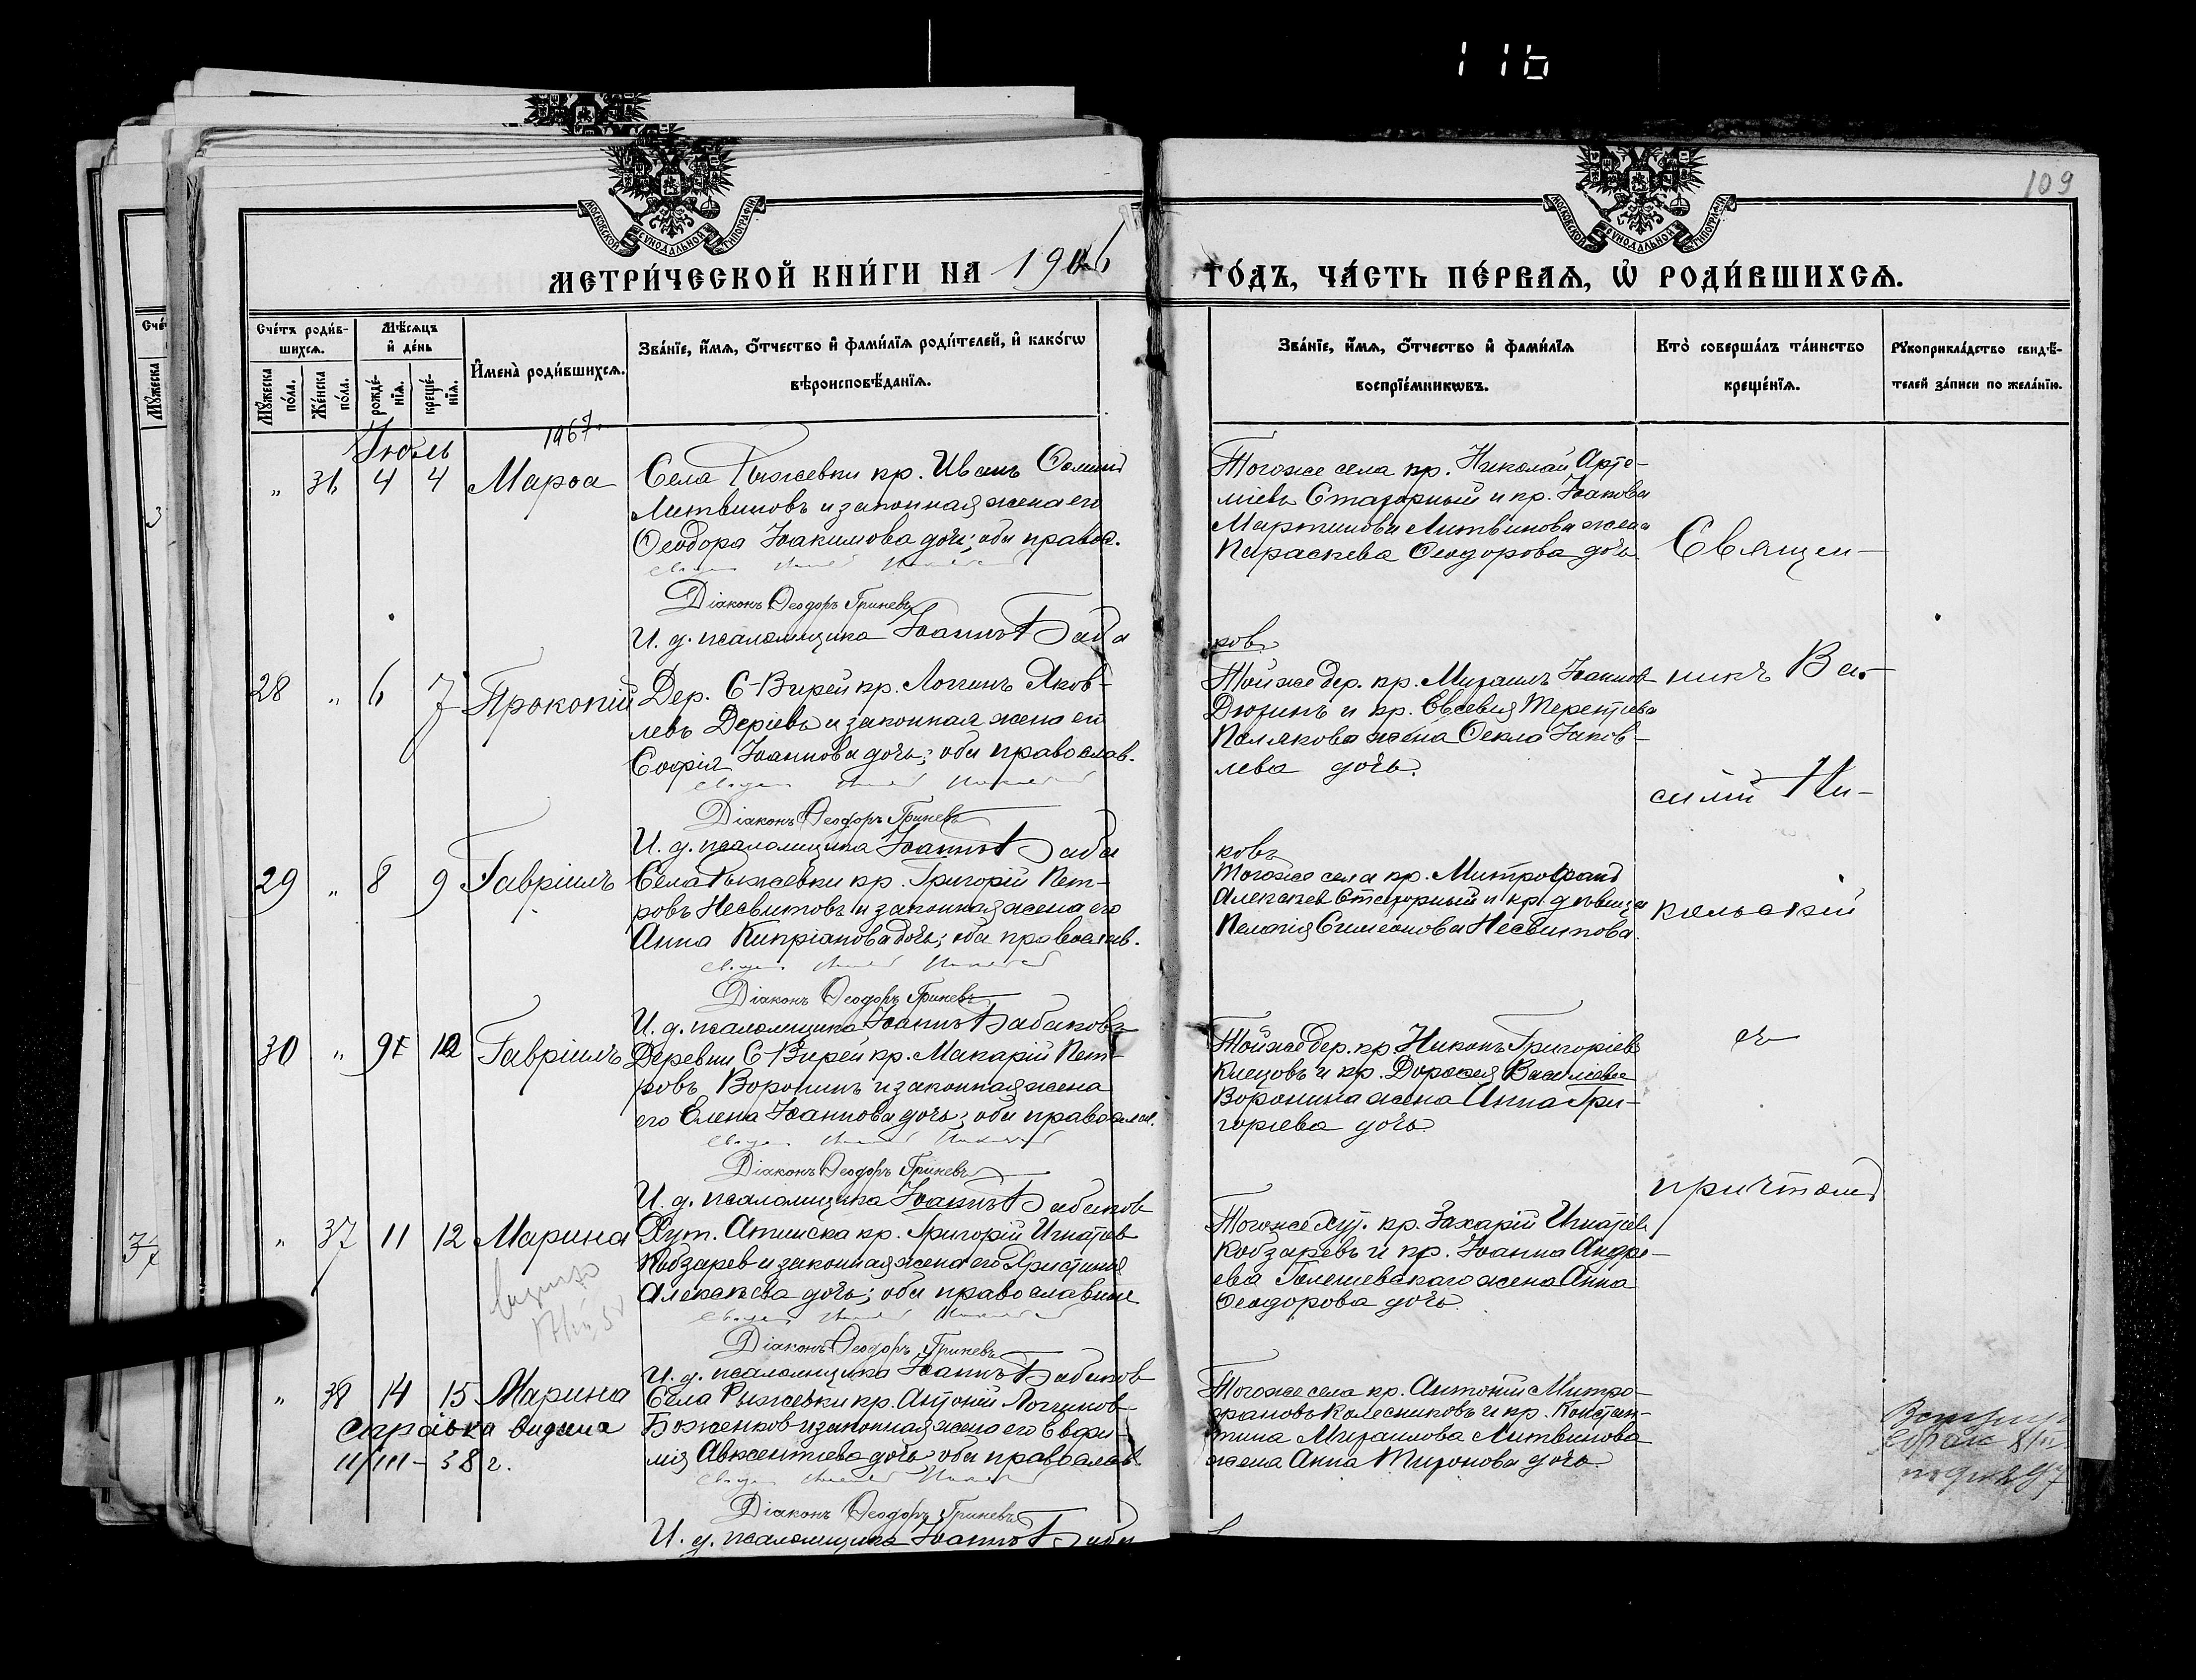 116
109
МОСКОВСКОЙ СѴНОДАЛЬНОЙ ТИПОГРАФІИ
МОСКОВСКОЙ СѴНОДАЛЬНОЙ ТИПОГРАФІИ
МЕТРИ́ЧЕСКОЙ КНИ́ГИ НА 1906
ГО́ДЪ, ЧА́СТЬ ПЕ́РВАЯ, Ѡ РОДИ́ВШИХСЯ.
Сче́тъ роди́в-
шихся.
Мѣ́сяцъ
и҆ де́нь
Му́жеска
по́ла.
Же́нска
по́ла.
рожде́-
нїя.
креще́-
нїя.
И҆мена̀ роди́вшихся.
Зва́нїе, и҆́мя, ѻ҆́тчество и҆ фами́лїя роди́телей, и҆ како́гѡ
вѣроисповѣ́данїя.
Зва́нїе, и҆́мя, ѻ҆́тчество и҆ фами́лїя
воспрїе́мникѡвъ.
Кто̀ соверша́лъ та́инство
креще́нїя.
Рꙋкоприкла́дство свидѣ́-
телей за́писи по жела́нїю.
Іюль
„ 36 4 4 Марѳа
Села Рыжевки кр. Иванъ Ѳоминъ
Литвиновъ и законная жена его
Ѳеодора Іоакимова дочь; оба правос.
Діаконъ Ѳеодоръ Гриневъ
И. д. псаломщика Іоаннъ Баба
Тогоже села кр. Николай Арте-
міевъ Стагорный и кр. Іакова
Мартинова Литвинова жена
Параскева Ѳеодорова дочь
Священ-
ковъ
28 „ 6 7 Прокопій
Дер. С-Вирей кр. Логгинъ Яков-
левъ Деріевъ и законная жена его
Софія Іоаннова дочь; оба православ.
Діаконъ Ѳеодоръ Гриневъ
И. д. псаломщика Іоаннъ Баба
Тойже дер. кр. Михаилъ Іоаннов
Дюжинъ и кр. Евсевія Терентіева
Полякова жена Ѳекла Іаков-
лева дочь.
никъ Ва-
силій Ни-
ковъ
29 „ 8 9 Гавріилъ
Села Рыжевки кр. Григорій Пет-
ровъ Несвитовъ и законная жена его
Анна Кипріанова дочь; оба православ.
Діаконъ Ѳеодоръ Гриневъ
И. д. псаломщика Іоаннъ Бабаковъ
Тогоже села кр. Митрофанъ
Алексѣев Стагорный и кр. дѣвица
Пелагія Симеонова Несвитова.
кольскій
30 „ 9 10 Гавріилъ
Деревни С-Вирей кр. Макарій Пет-
ровъ Воронинъ и законная жена
его Елена Іоаннова дочь; оба православ.
Діаконъ Ѳеодоръ Гриневъ
И. д. псаломщика Іоаннъ Бабаков
Тойже дер. кр. Никонъ Григоріевъ
Клецовъ и кр. Дорофея Василіева
Воронина жена Анна Гри-
горіева дочь.
съ
причтомъ
„ 37 11 12 Марина
Хут. Атинска кр. Григорій Игнатіев
Кобзарев и законная жена его Христина
Алексѣева дочь; оба православные
Діаконъ Ѳеодоръ Гриневъ
И. д. псаломщика Іоаннъ Бабаков
Тогоже хут. кр. Захарій Игнатіев
Кобзаревъ и кр. Іоанна Андре-
ева Голешевскаго жена Анна
Ѳеодорова дочь.
„ 38 14 15 Марина
справка видана
11/III - 38 г.
Села Рыжевки кр. Антоній Логгинов
Боженков и законная жена его Евфи-
мія Авксентіева дочь; оба православ.
Діаконъ Ѳеодоръ Гриневъ
И. д. псаломщика Іоаннъ Баба
Тогоже села кр. Антоній Митро-
фановъ Колесниковъ и кр. Констан-
тина Михаилова Литвинова
жена Анна Тихонова дочь.
37